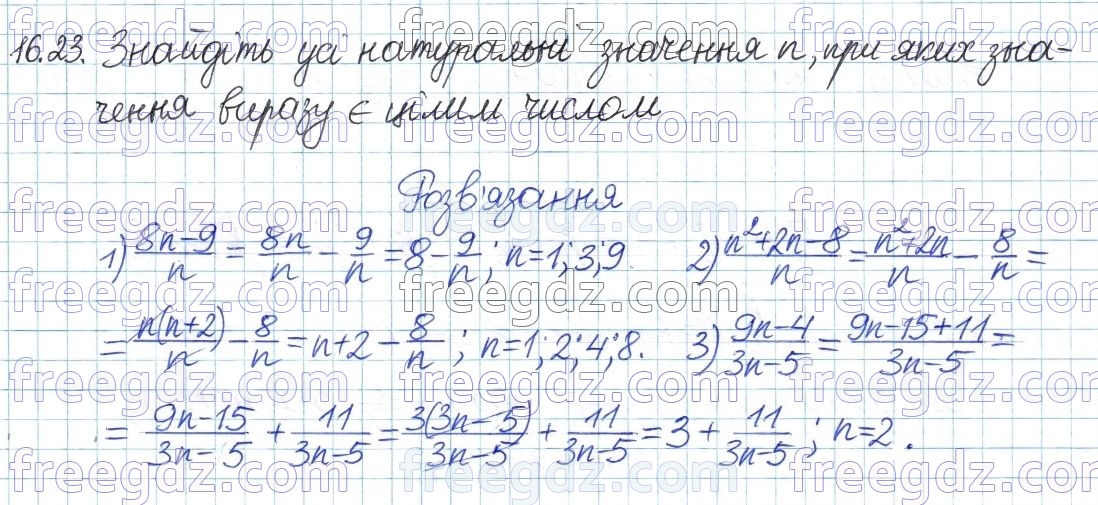 16.23. Знайдіть усі натуральні значення n, при яких зна-
чення виразу є цілим числом
Розв'язання
1) (8n-9)/n = 8n/n - 9/n = 8 - 9/n; n=1; 3; 9. 2) (n²+2n-8)/n = (n²+2n)/n - 8/n =
= n(n+2)/n - 8/n = n+2 - 8/n; n=1; 2; 4; 8. 3) (9n-4)/(3n-5) = (9n-15+11)/(3n-5) =
= (9n-15)/(3n-5) + 11/(3n-5) = 3(3n-5)/(3n-5) + 11/(3n-5) = 3 + 11/(3n-5); n=2.
freegdz.com